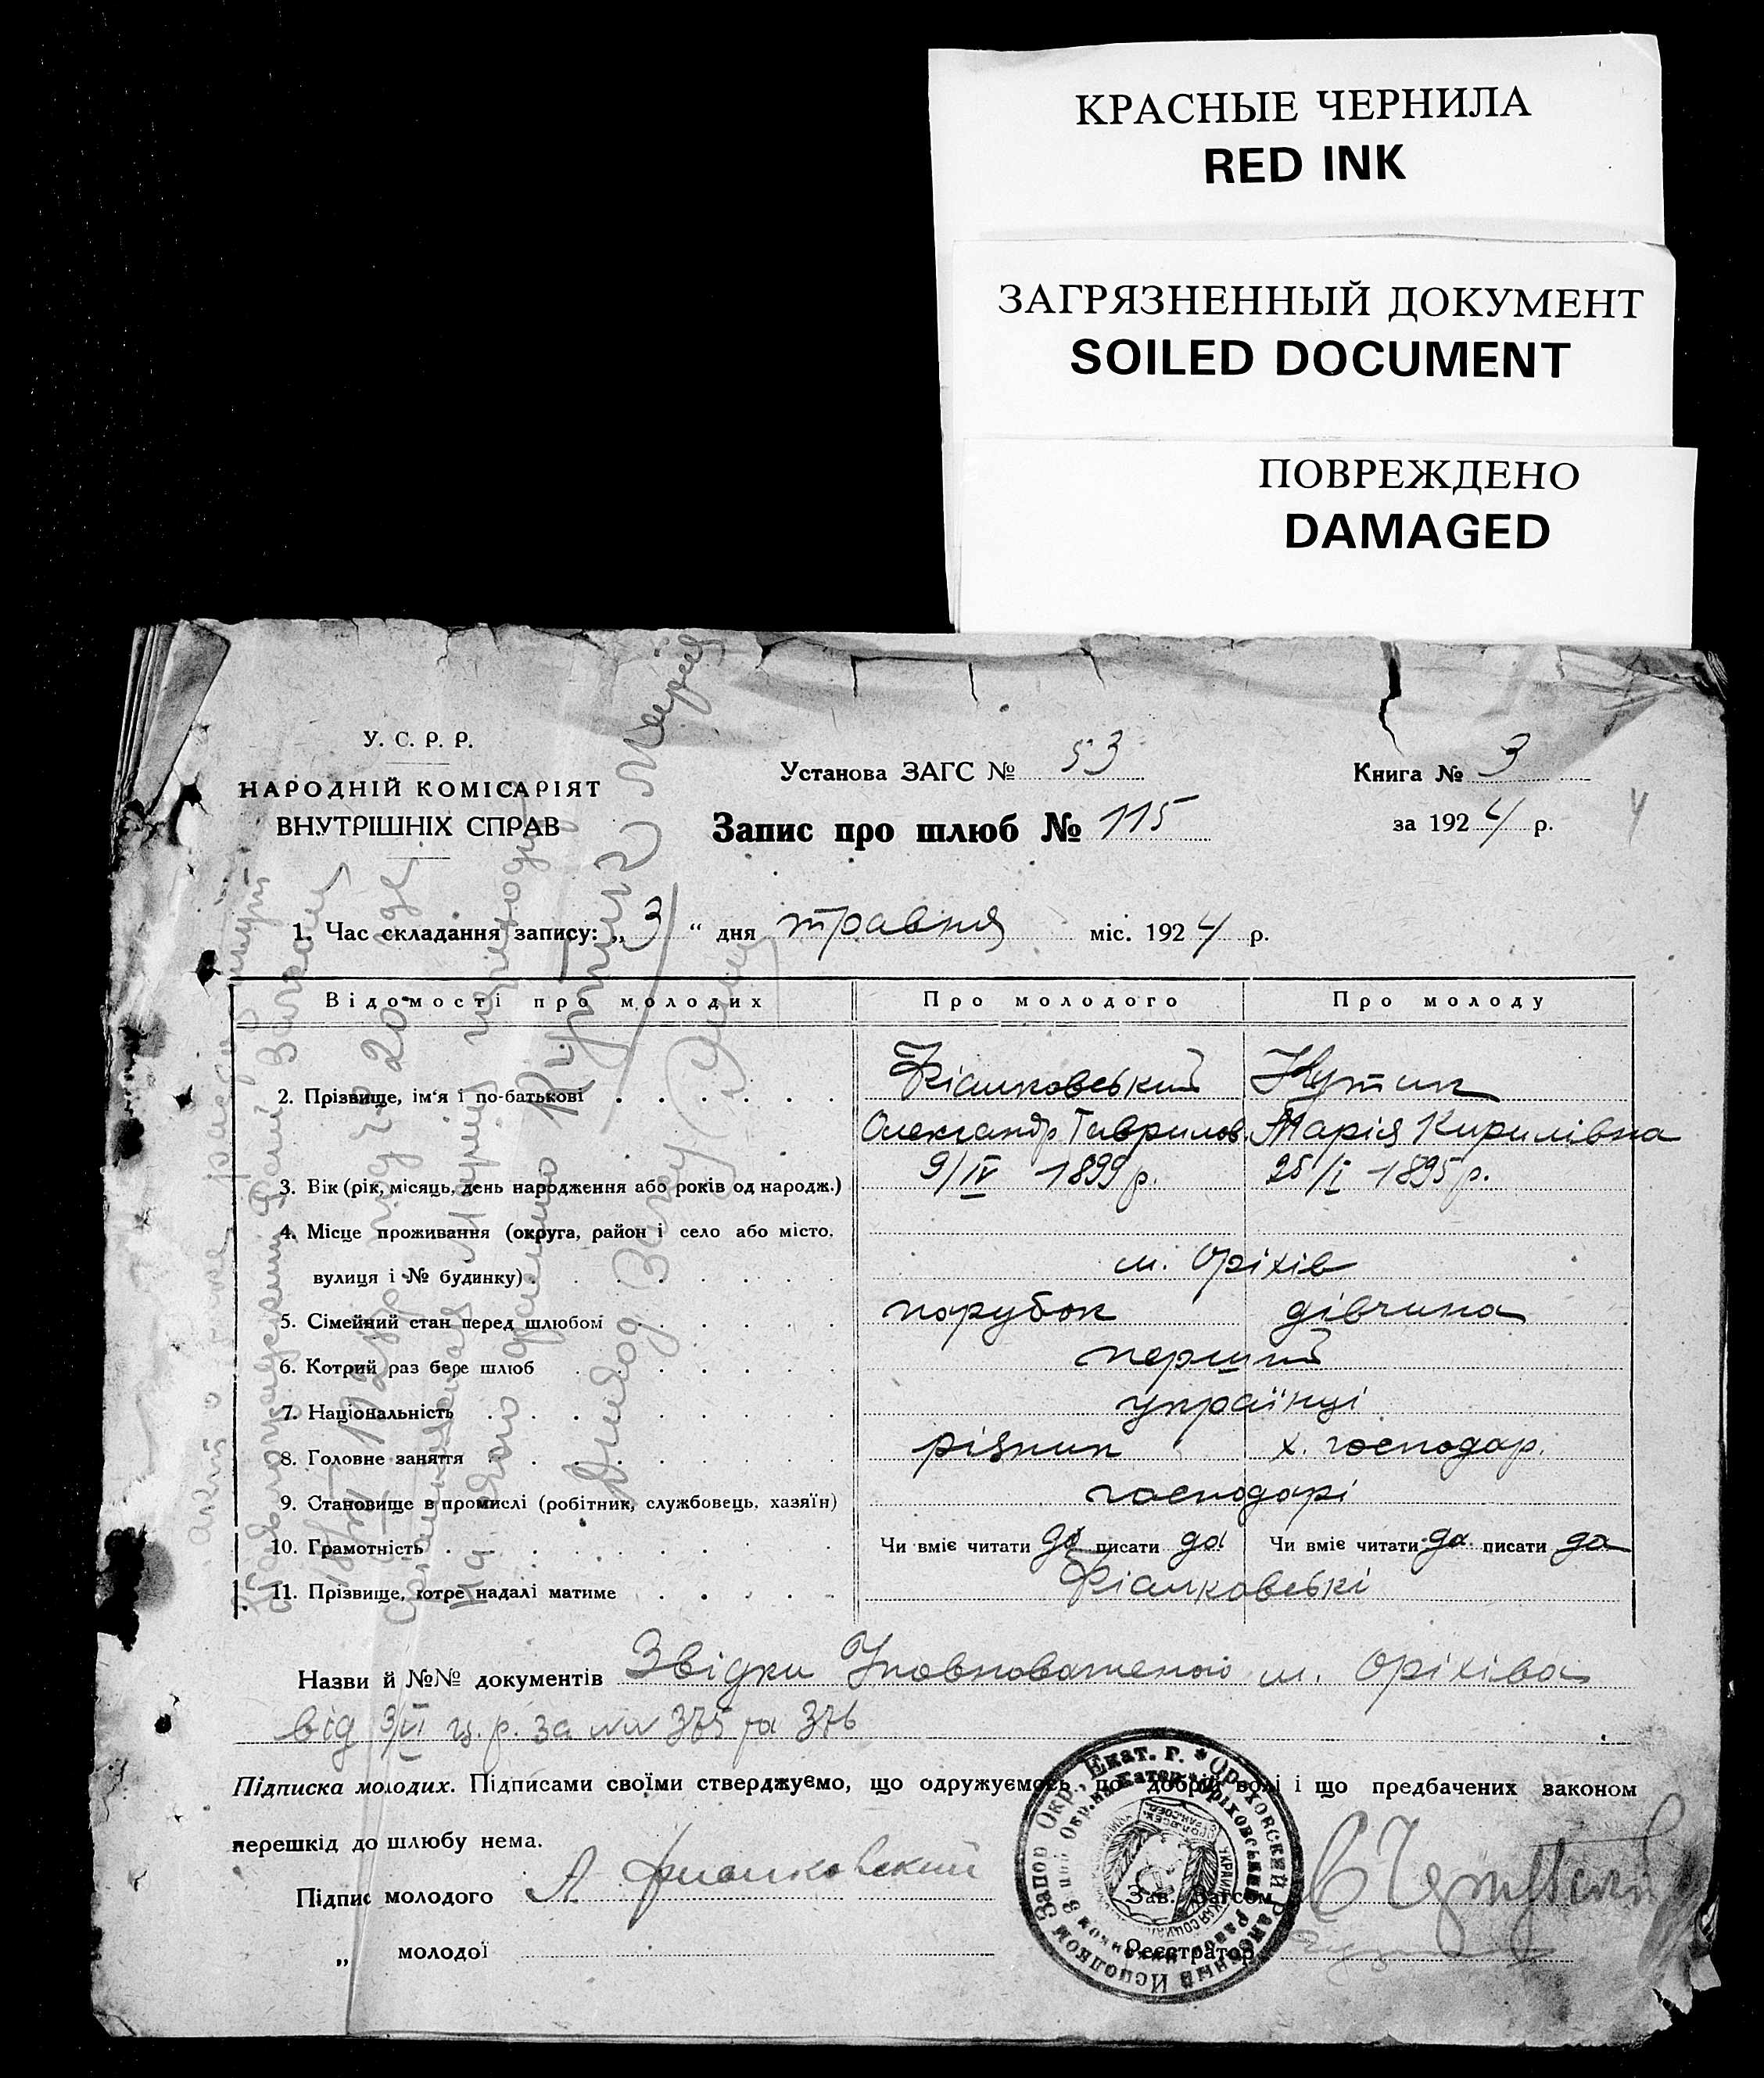 КРАСНЫЕ ЧЕРНИЛА
RED INK
ЗАГРЯЗНЕННЫЙ ДОКУМЕНТ
SOILED DOCUMENT
ПОВРЕЖДЕНО
DAMAGED
У. С. Р. Р.
НАРОДНІЙ КОМІСАРІЯТ
ВНУТРІШНІХ СПРАВ
Установа ЗАГС № 53
Книга № 3
Запис про шлюб № 115
за 1924 р.
4
1. Час складання запису: „3“ дня травня міс. 1924 р.
Відомості про молодих Про молодого Про молоду
2. Прізвище, ім'я і по-батькові Фіалковський Кутик
Олександр Гаврилов. Марія Кирилівна
3. Вік (рік, місяць, день народження або років од народж.) 9/IV 1899 р. 25/I 1895 р.
4. Місце проживання (округа, район і село або місто,
вулиця і № будинку) м. Оріхів
5. Сімейний стан перед шлюбом парубок дівчина
6. Котрий раз бере шлюб перший
7. Національність українці
8. Головне заняття різник х. господар.
9. Становище в промислі (робітник, службовець, хазяїн) господарі
10. Грамотність Чи вміє читати да писати да Чи вміє читати да писати да
11. Прізвище, котре надалі матиме Фіалковські
Назви й №№ документів Звідки Уповноваженого м. Оріхіва
від 3/VI ц. р. за №№ 375 та 376
Підписка молодих. Підписами своїми стверджуємо, що одружуємось по добрій волі і що предбачених законом
перешкід до шлюбу нема.
Підпис молодого А Фиалковский
Зав. Загсом
„ молодої
Реєстратор